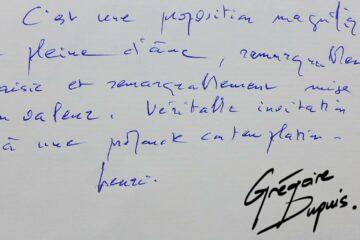 C'est une proposition magnifiq
pleine d'âme, remarquablemen
aisie et remarquablement mise
en valeur. Véritable invitation
à une profonde contemplation.
Grégoire
Dupuis.